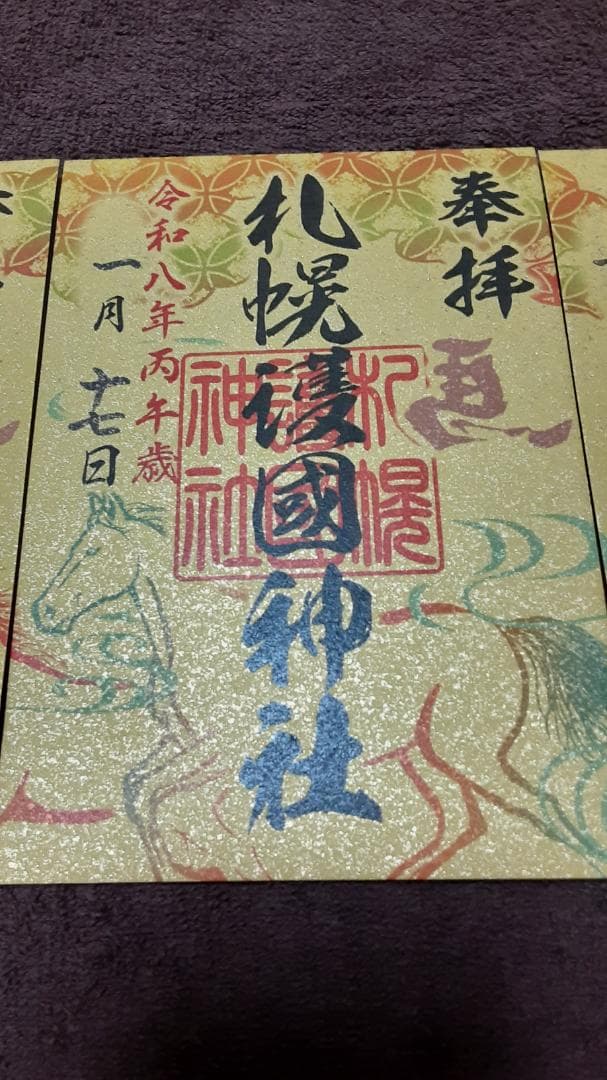 奉拝
馬
札幌護國神社
札幌
護國
神社
令和八年丙午歳
一月十七日